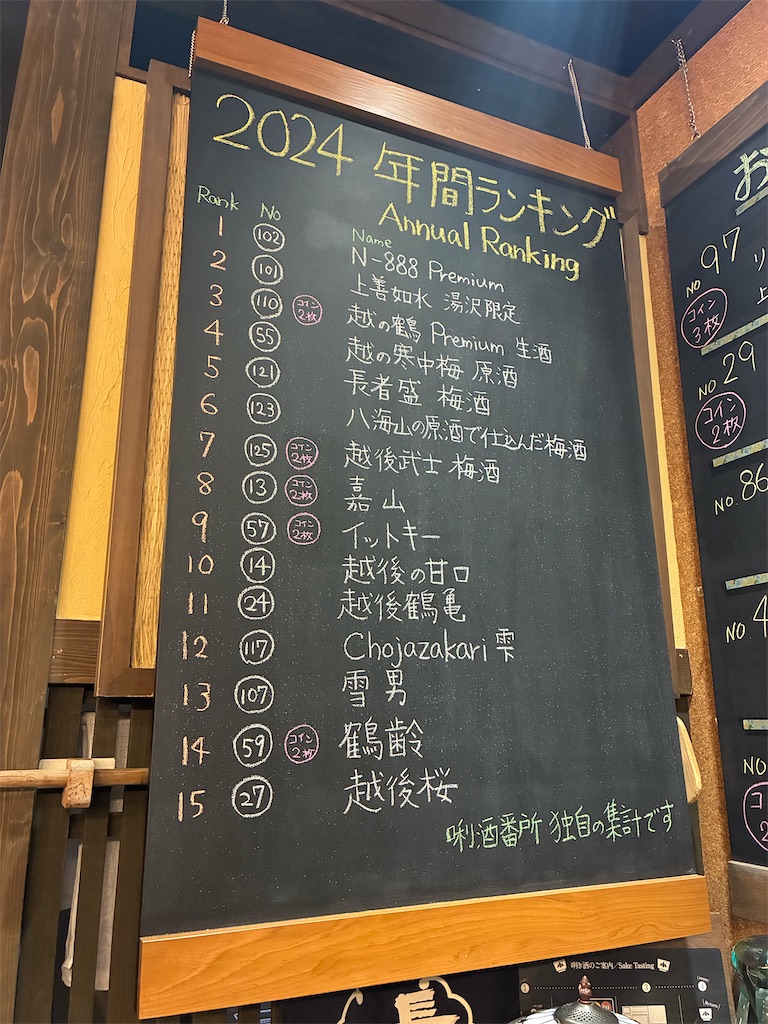 2024 年間ランキング
Annual Ranking
Rank No Name
1 102 N-888 Premium
2 101 上善如水 湯沢限定
3 110 コイン2枚 越の鶴 Premium 生酒
4 55 越の寒中梅 原酒
5 121 長者盛 梅酒
6 123 八海山の原酒で仕込んだ梅酒
7 125 コイン2枚 越後武士 梅酒
8 13 コイン2枚 嘉山
9 57 コイン2枚 イットキー
10 14 越後の甘口
11 24 越後鶴亀
12 117 Chojazakari 雫
13 107 雪男
14 59 コイン2枚 鶴齢
15 27 越後桜
唎酒番所 独自の集計です
お
No 97
コイン3枚
リ
上
No 29
コイン2枚
No. 86
No. 4
No
コ
2
唎き酒のご案内/Sake Tasting